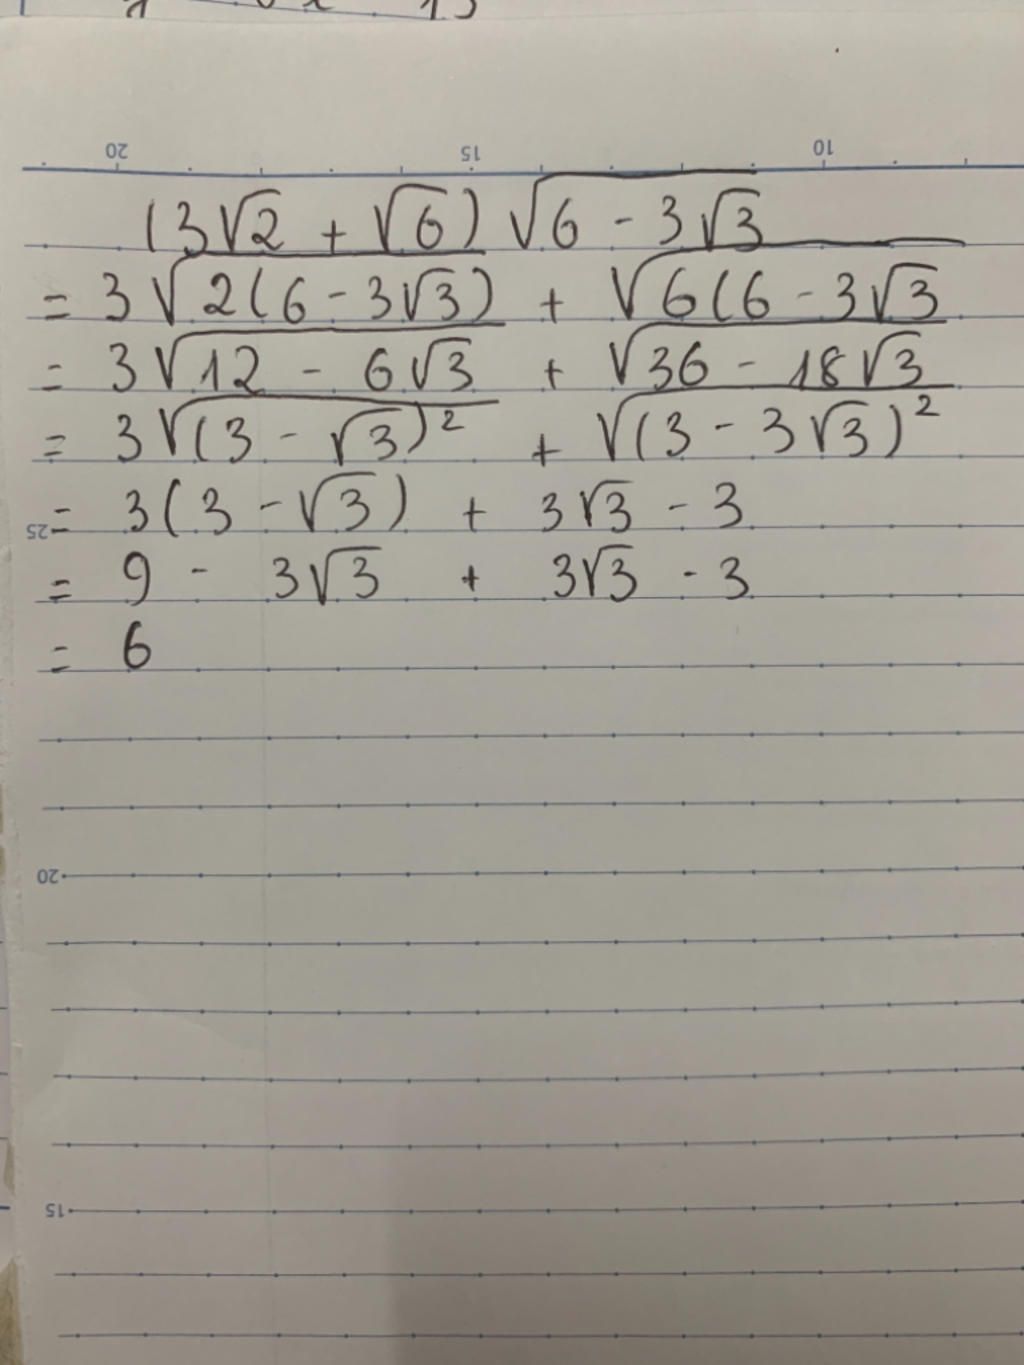 20 15 10
(3√2 + √6) √6 - 3√3
= 3√2(6 - 3√3) + √6(6 - 3√3
= 3√12 - 6√3 + √36 - 18√3
= 3√(3 - √3)² + √(3 - 3√3)²
25 = 3(3 - √3) + 3√3 - 3
= 9 - 3√3 + 3√3 - 3
= 6
20
15